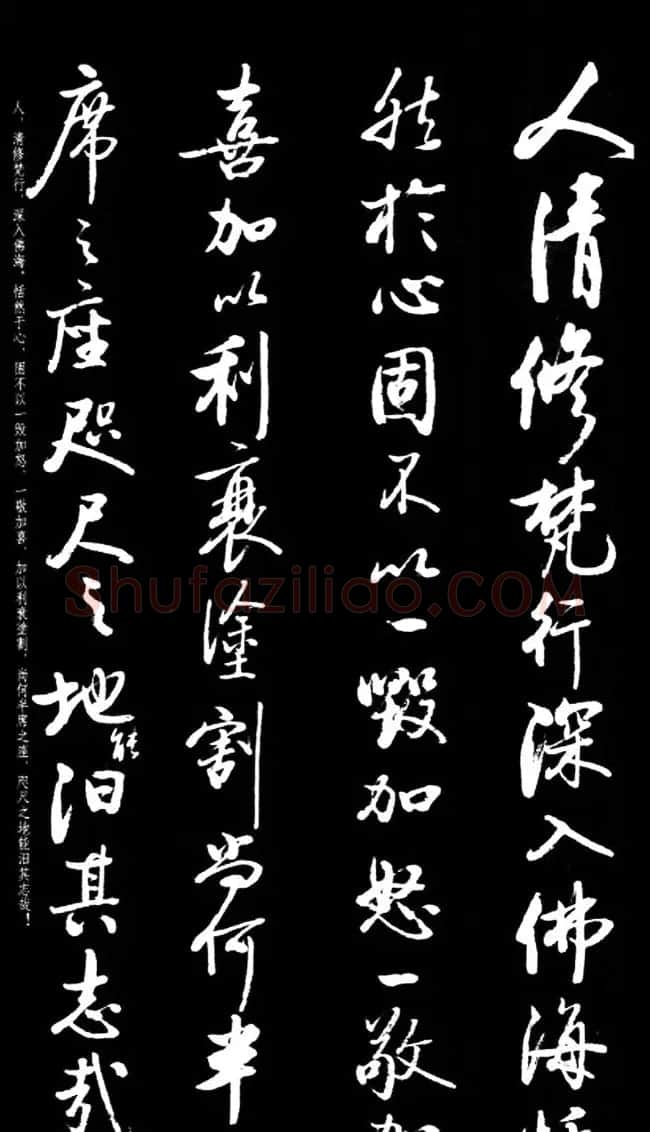 人清修梵行深入佛海恬
然於心固不以一毁加怒一敬加
喜加以利衰塗割尚何半
席之座咫尺之地能汩其志哉
人,清修梵行,深入佛海,恬然于心,固不以一毁加怒,一敬加喜,加以利衰塗割,尚何半席之座,咫尺之地能汩其志哉!
Shufaziliao.COM